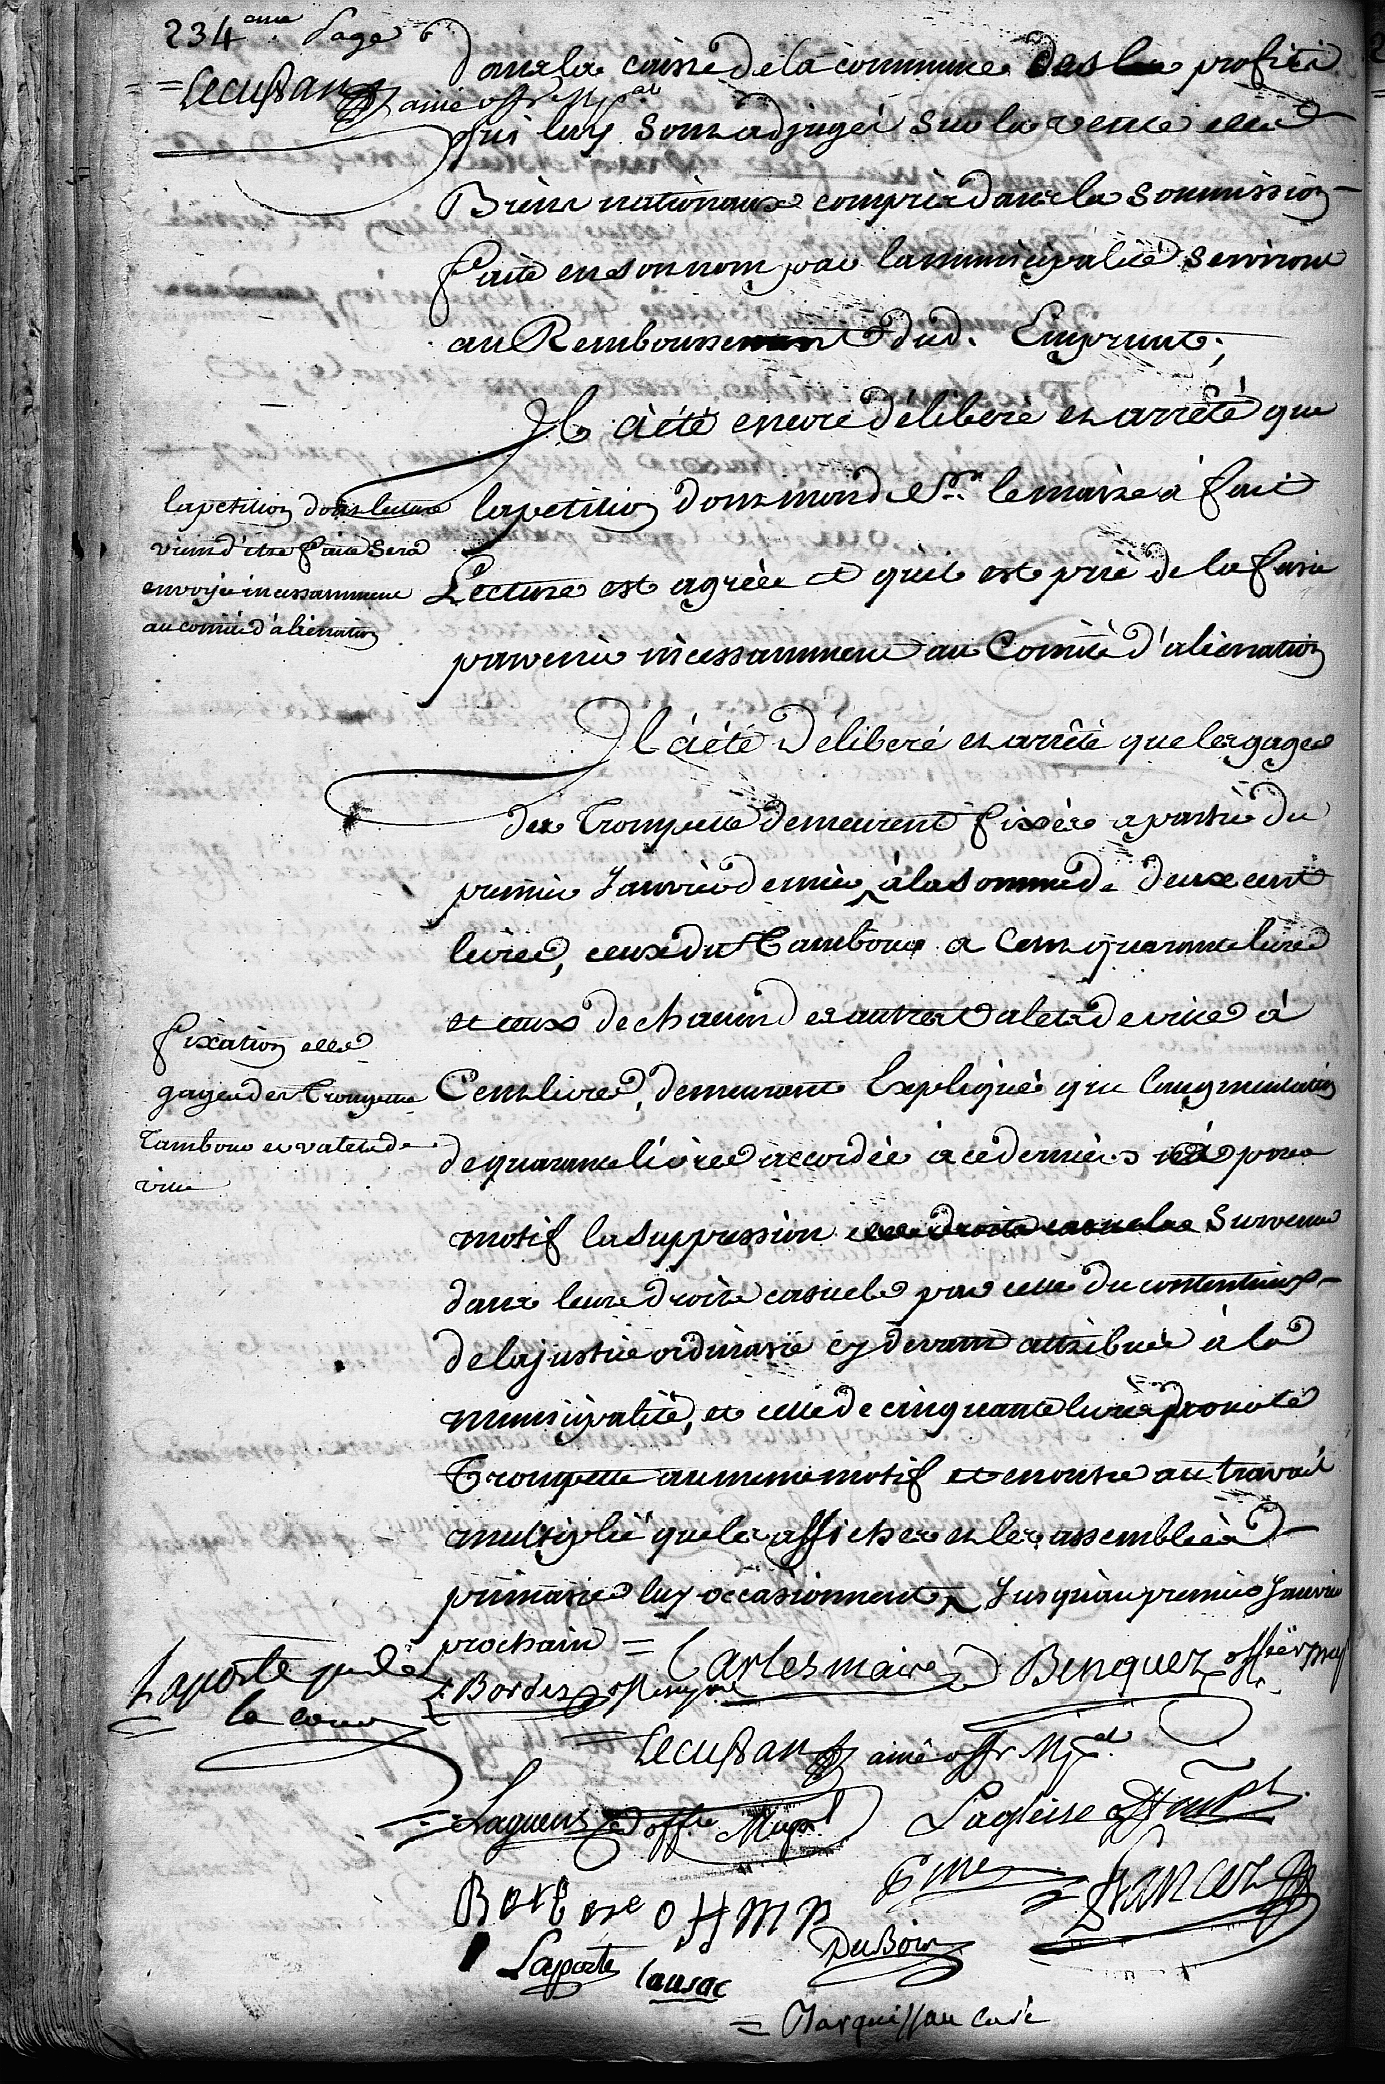 234eme Page
Lecussan ainé offr Mpal
dans la caisse de la commune des les profits
qui luy sont adjugés sur la vente des
Biens nationaux compris dans la soumission
faite en son nom par la municipalité serviront
au Remboursement dud. Emprunt;
Il a été encore déliberé et arrêté que
la petition dont mond. Sr. le maire a fait
Lecture est agréée et qu'il est prié de la faire
parvenir incessamment au Comité d'alienation
la petition dont lecture
vient d'etre faite sera
envoyée incessamment
au comité d'alienation
Il a été déliberé et arrêté que les gages
des Trompette demeurent fixés a partir du
premier Janvier dernier à la somme de deux cent
livres, ceux du Tambour a Cent quarante livres
et ceux de chacun des autres valets de ville à
Cent livres, demeurant Expliqué que l'augmentation
de quarante livres accordée à ce dernier a pour
motif la suppression des droits casuels survenue
dans leurs droits casuels par celle du contentieux
de la justice ordinaire cy devant attribuée à la
municipalité, et celle de cinquante livres pour le
Trompette au meme motif et encore au travail
multiplié que les affiches et les assemblées
primaires luy occasionnent, Jusqu'au premier Janvier
prochain =
fixation des
gages des Trompette
Tambour et valets de
ville
Cartes maire Binquez officier mpal
Bordes off mupal
Laporte pr de
la come
Lecussan ainé offr Mpal
Laguens offir Mupl
Lagleise
Laporte Dubois
Tarquissan curé